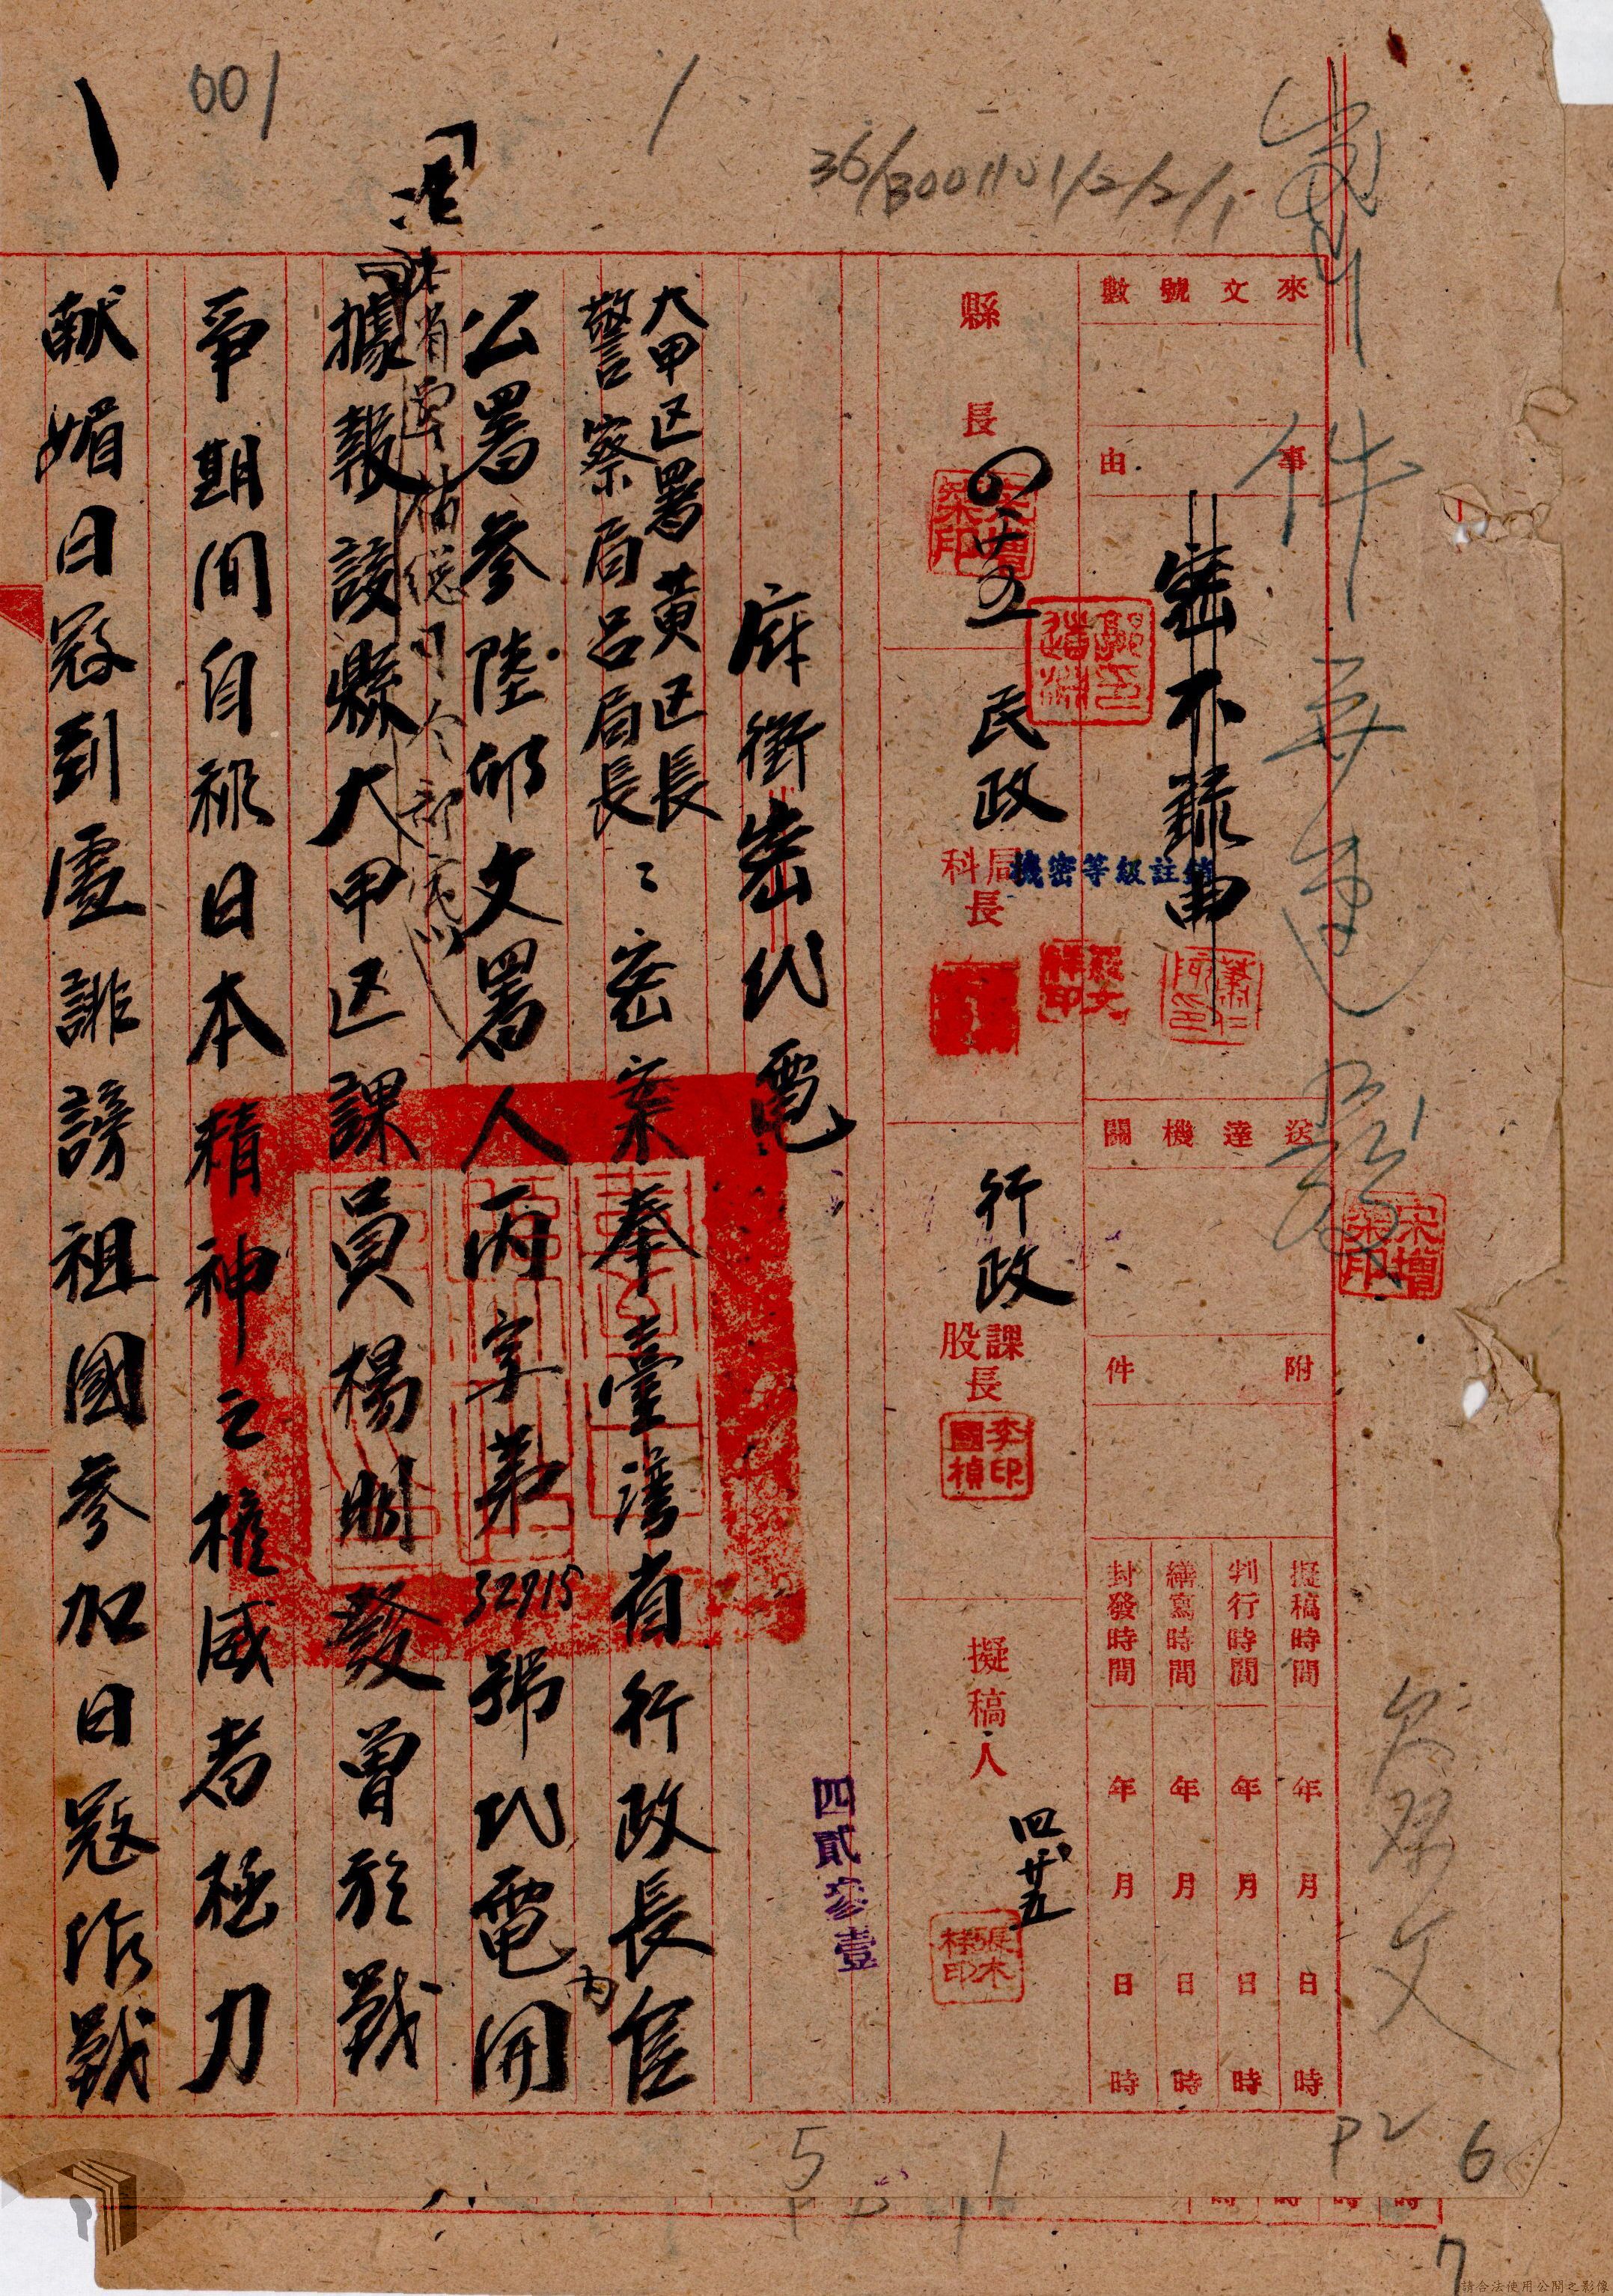 001
/
36/3001101/2/2/1
件
來文號數
事由
密不錄由
送達機關
附件
擬稿時間 年 月 日 時
判行時間 年 月 日 時
繕寫時間 年 月 日 時
封發時間 年 月 日 時
縣長
民政
局科長
行政
課股長
擬稿人
四廿五
機密等級註銷
宋增榘印
李國楨印
四貳參壹
府銜密代電
大甲区署黃区長
警察局呂局長
密案奉臺灣省行政長官
公署參陸卯文署人丙字第32915號代電內開
據報該縣大甲区課員楊明發曾於戰
爭期間自稱日本精神之權威者極力
献媚日寇到處誹謗祖國參加日寇作戰
欠歸文
5
1
P2
6
7
請合法使用公開之影像